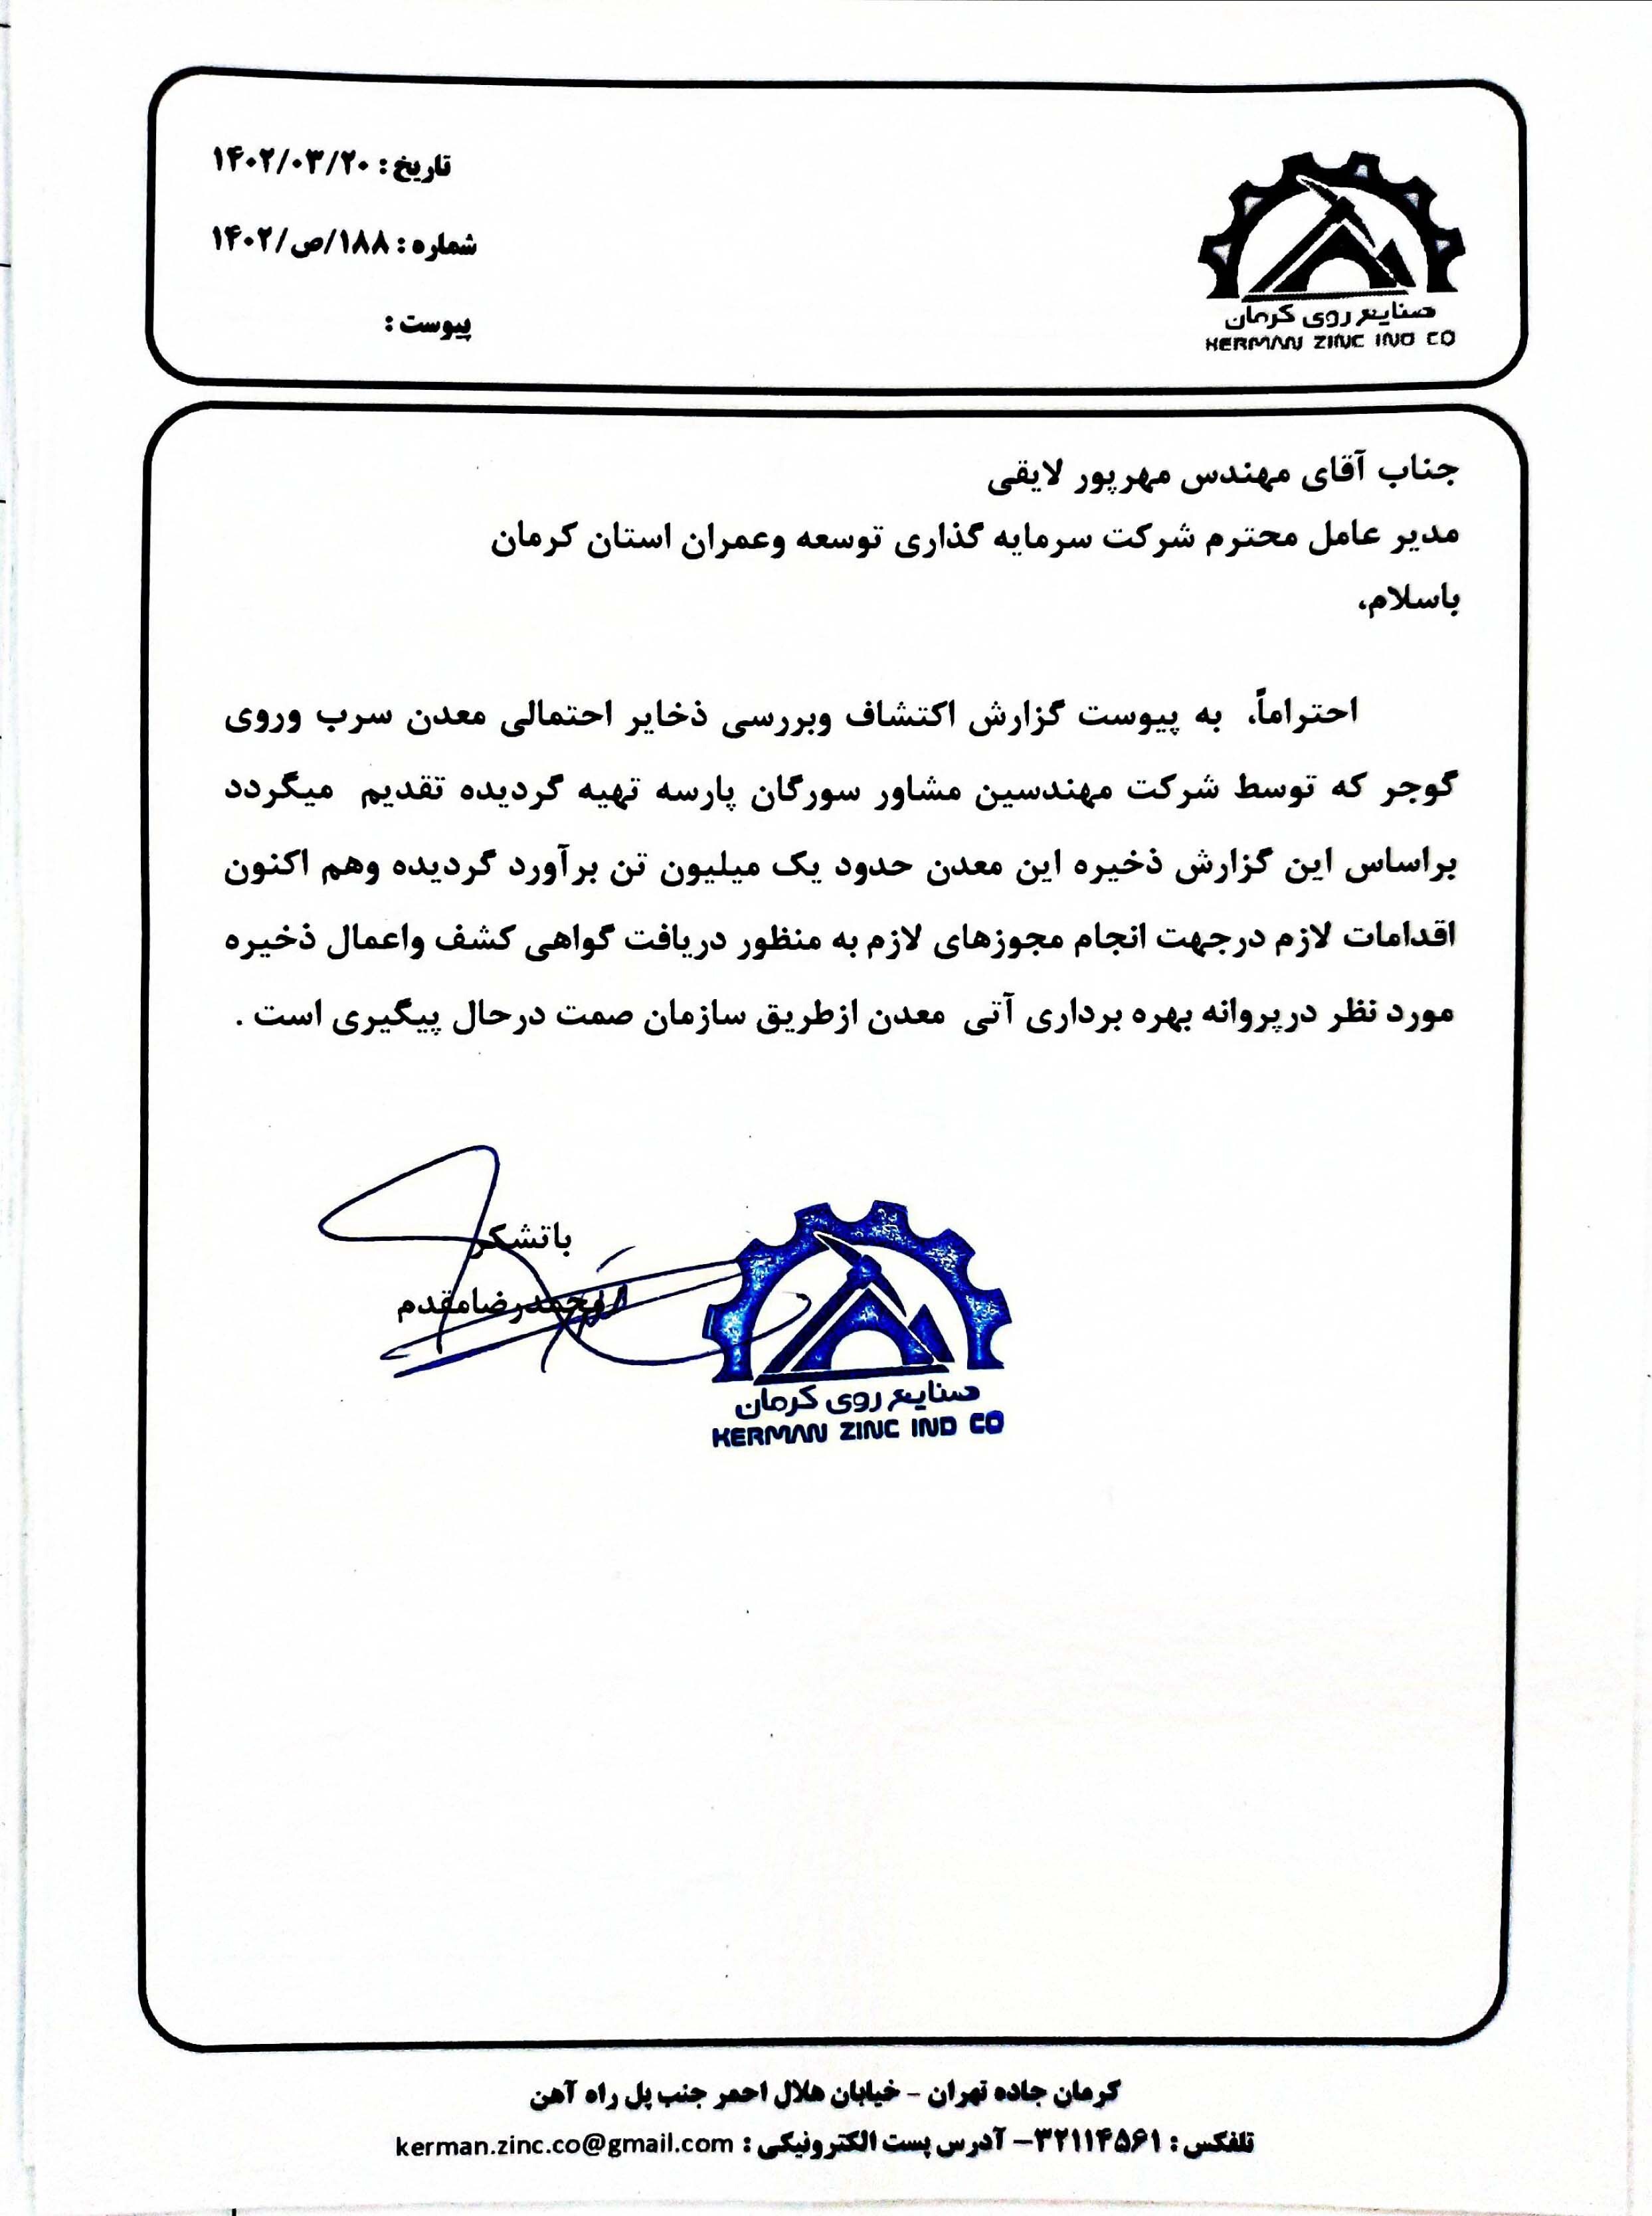 تاریخ : ۱۴۰۲/۰۳/۲۰
شماره : ۱۸۸/ص/۱۴۰۲
پیوست :
صنایع روی کرمان
KERMAN ZINC IND CO
جناب آقای مهندس مهرپور لایقی
مدیر عامل محترم شرکت سرمایه گذاری توسعه وعمران استان کرمان
باسلام،
احتراماً، به پیوست گزارش اکتشاف وبررسی ذخایر احتمالی معدن سرب وروی
گوجر که توسط شرکت مهندسین مشاور سورگان پارسه تهیه گردیده تقدیم میگردد
براساس این گزارش ذخیره این معدن حدود یک میلیون تن برآورد گردیده وهم اکنون
اقدامات لازم درجهت انجام مجوزهای لازم به منظور دریافت گواهی کشف واعمال ذخیره
مورد نظر درپروانه بهره برداری آتی معدن ازطریق سازمان صمت درحال پیگیری است .
باتشکر
محمدرضامقدم
صنایع روی کرمان
KERMAN ZINC IND CO
کرمان جاده تهران - خیابان هلال احمر جنب پل راه آهن
تلفکس : ۳۲۱۱۴۵۶۱– آدرس پست الکترونیکی : kerman.zinc.co@gmail.com